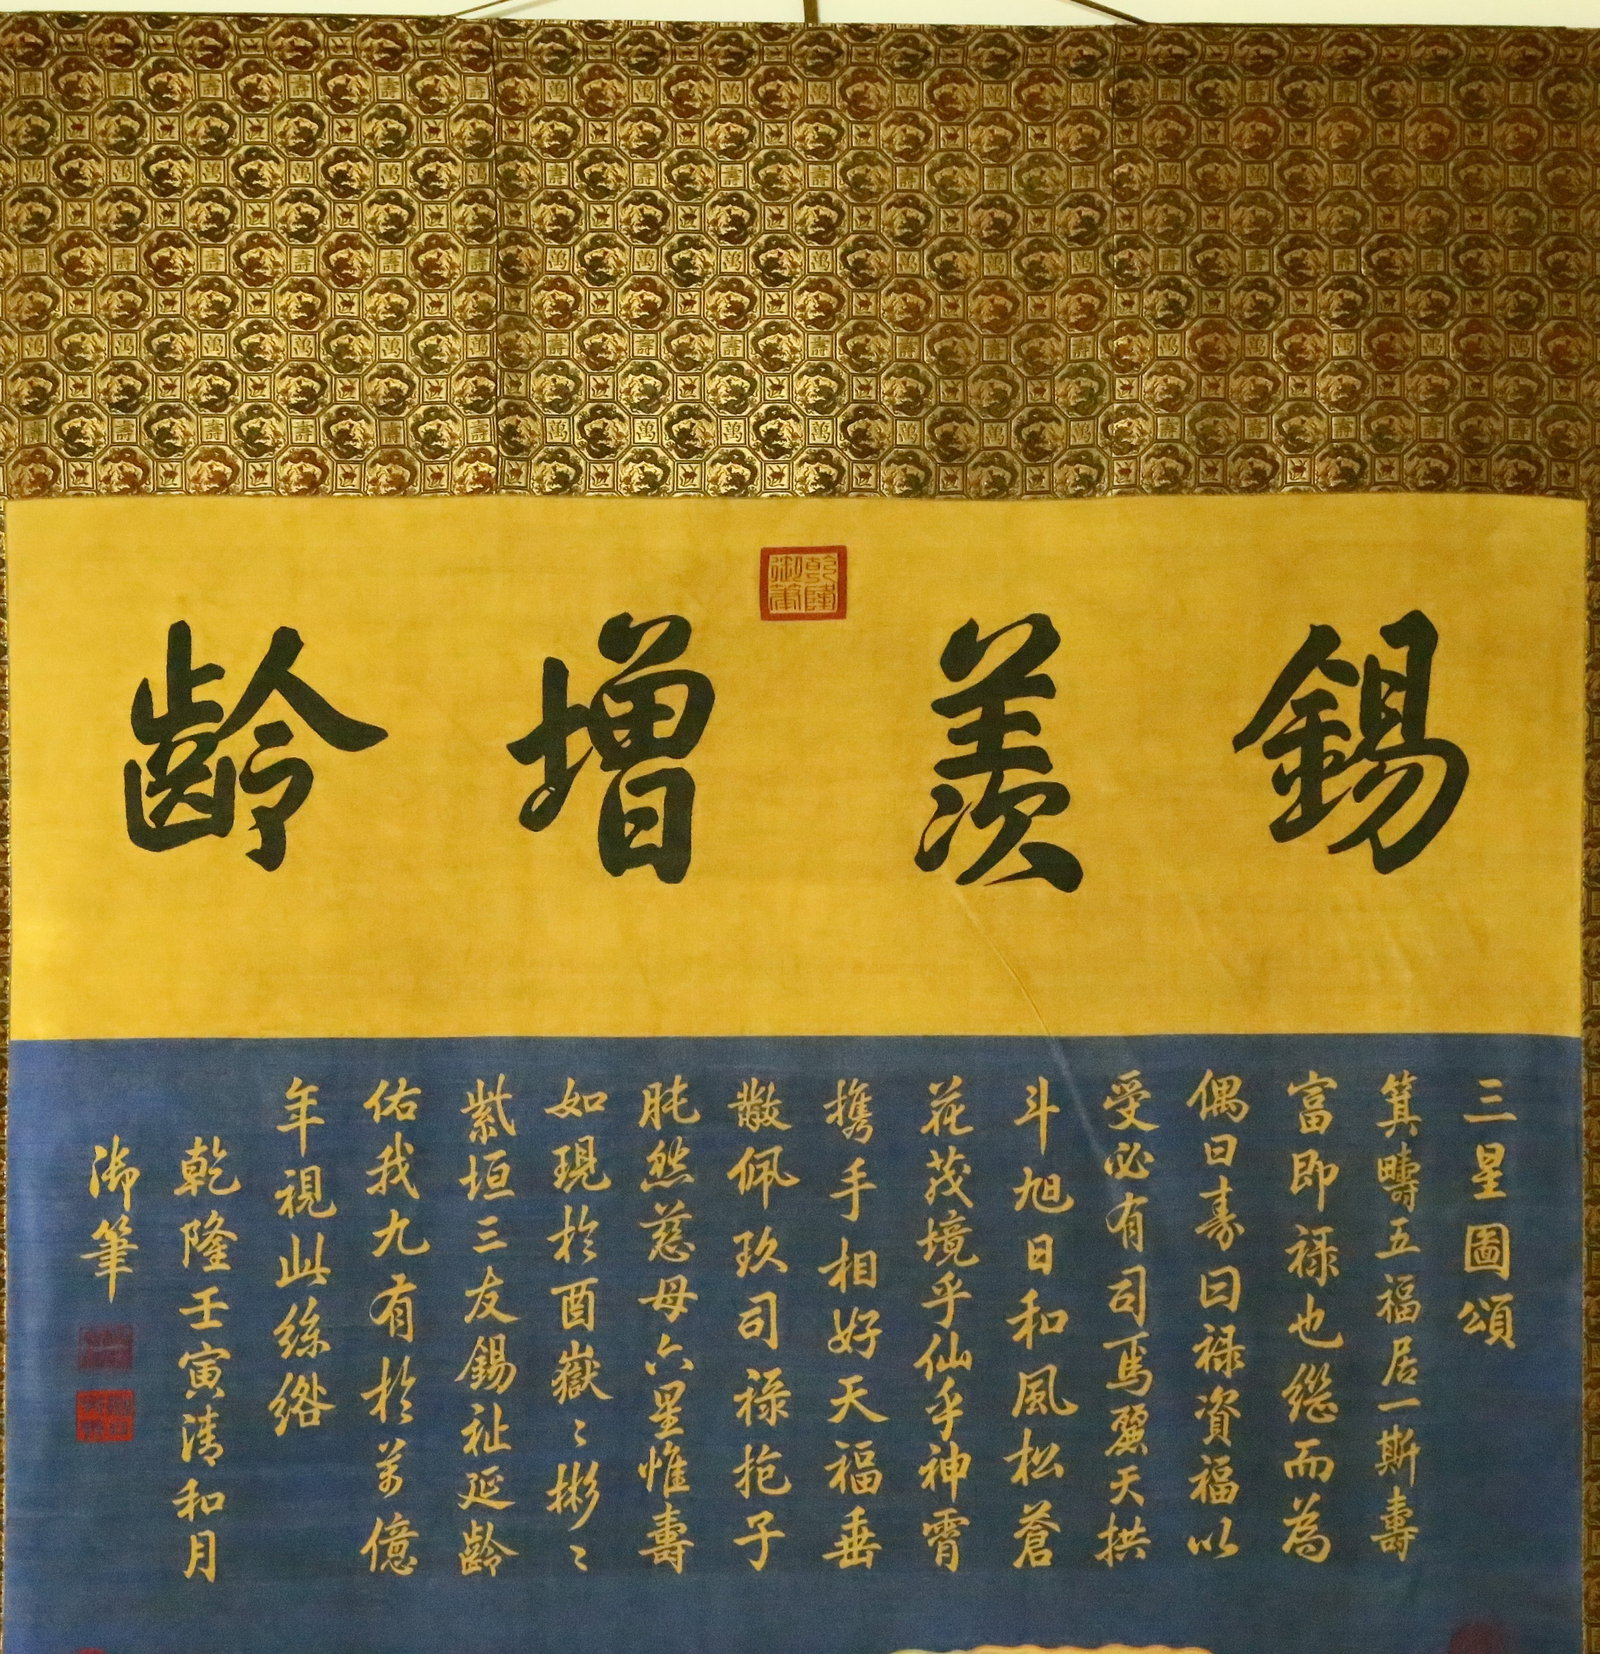 錫羨增齡
乾隆
御筆
三星圖頌
箕疇五福居一斯壽
富即祿也繼而為
偶曰壽曰祿資福以
受必有司焉麗天拱
斗旭日和風松蒼
花茂境乎仙乎神霄
携手相好天福垂
黻佩玖司祿抱子
肫然慈母六星惟壽
如現於酉嶽〻彬〻
紫垣三友錫祉延齡
佑我九有於万億
年視此絲綹
乾隆壬寅清和月
御筆